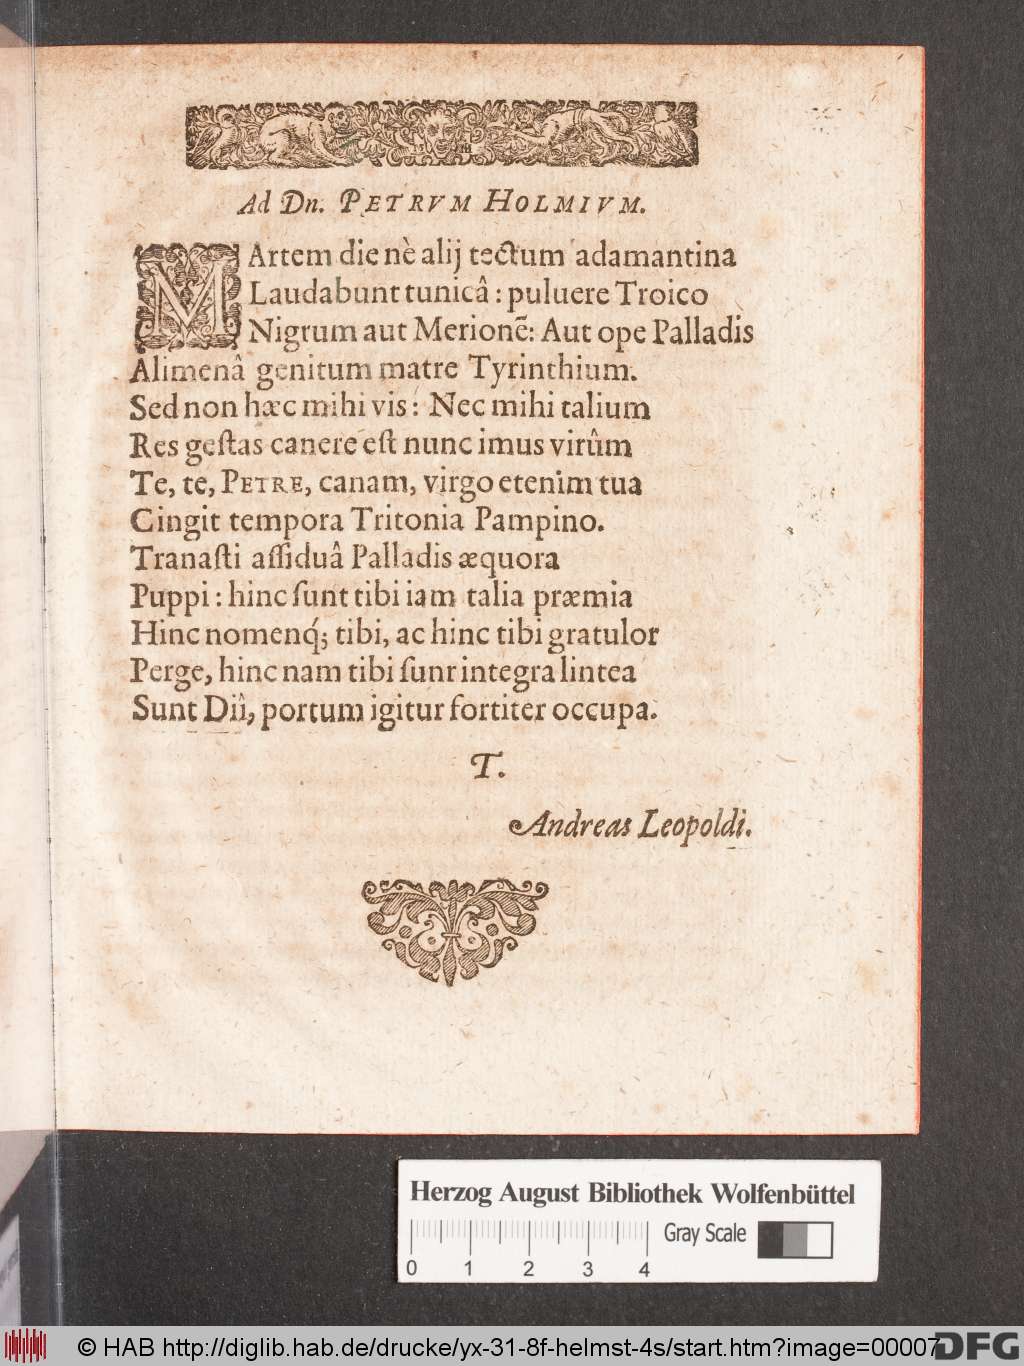 Ad Dn. PETRVM HOLMIVM.
MArtem die nè alij tectum adamantina
Laudabunt tunicâ : puluere Troico
Nigrum aut Merionẽ: Aut ope Palladis
Alimenâ genitum matre Tyrinthium.
Sed non hæc mihi vis : Nec mihi talium
Res geſtas canere eſt nunc imus virûm
Te, te, PETRE, canam, virgo etenim tua
Cingit tempora Tritonia Pampino.
Tranaſti aſſiduâ Palladis æquora
Puppi : hinc ſunt tibi iam talia præmia
Hinc nomenq́; tibi, ac hinc tibi gratulor
Perge, hinc nam tibi ſunr integra lintea
Sunt Diî, portum igitur fortiter occupa.
T.
Andreas Leopoldi.
Herzog August Bibliothek Wolfenbüttel
Gray Scale
0 1 2 3 4
© HAB http://diglib.hab.de/drucke/yx-31-8f-helmst-4s/start.htm?image=00007
DFG